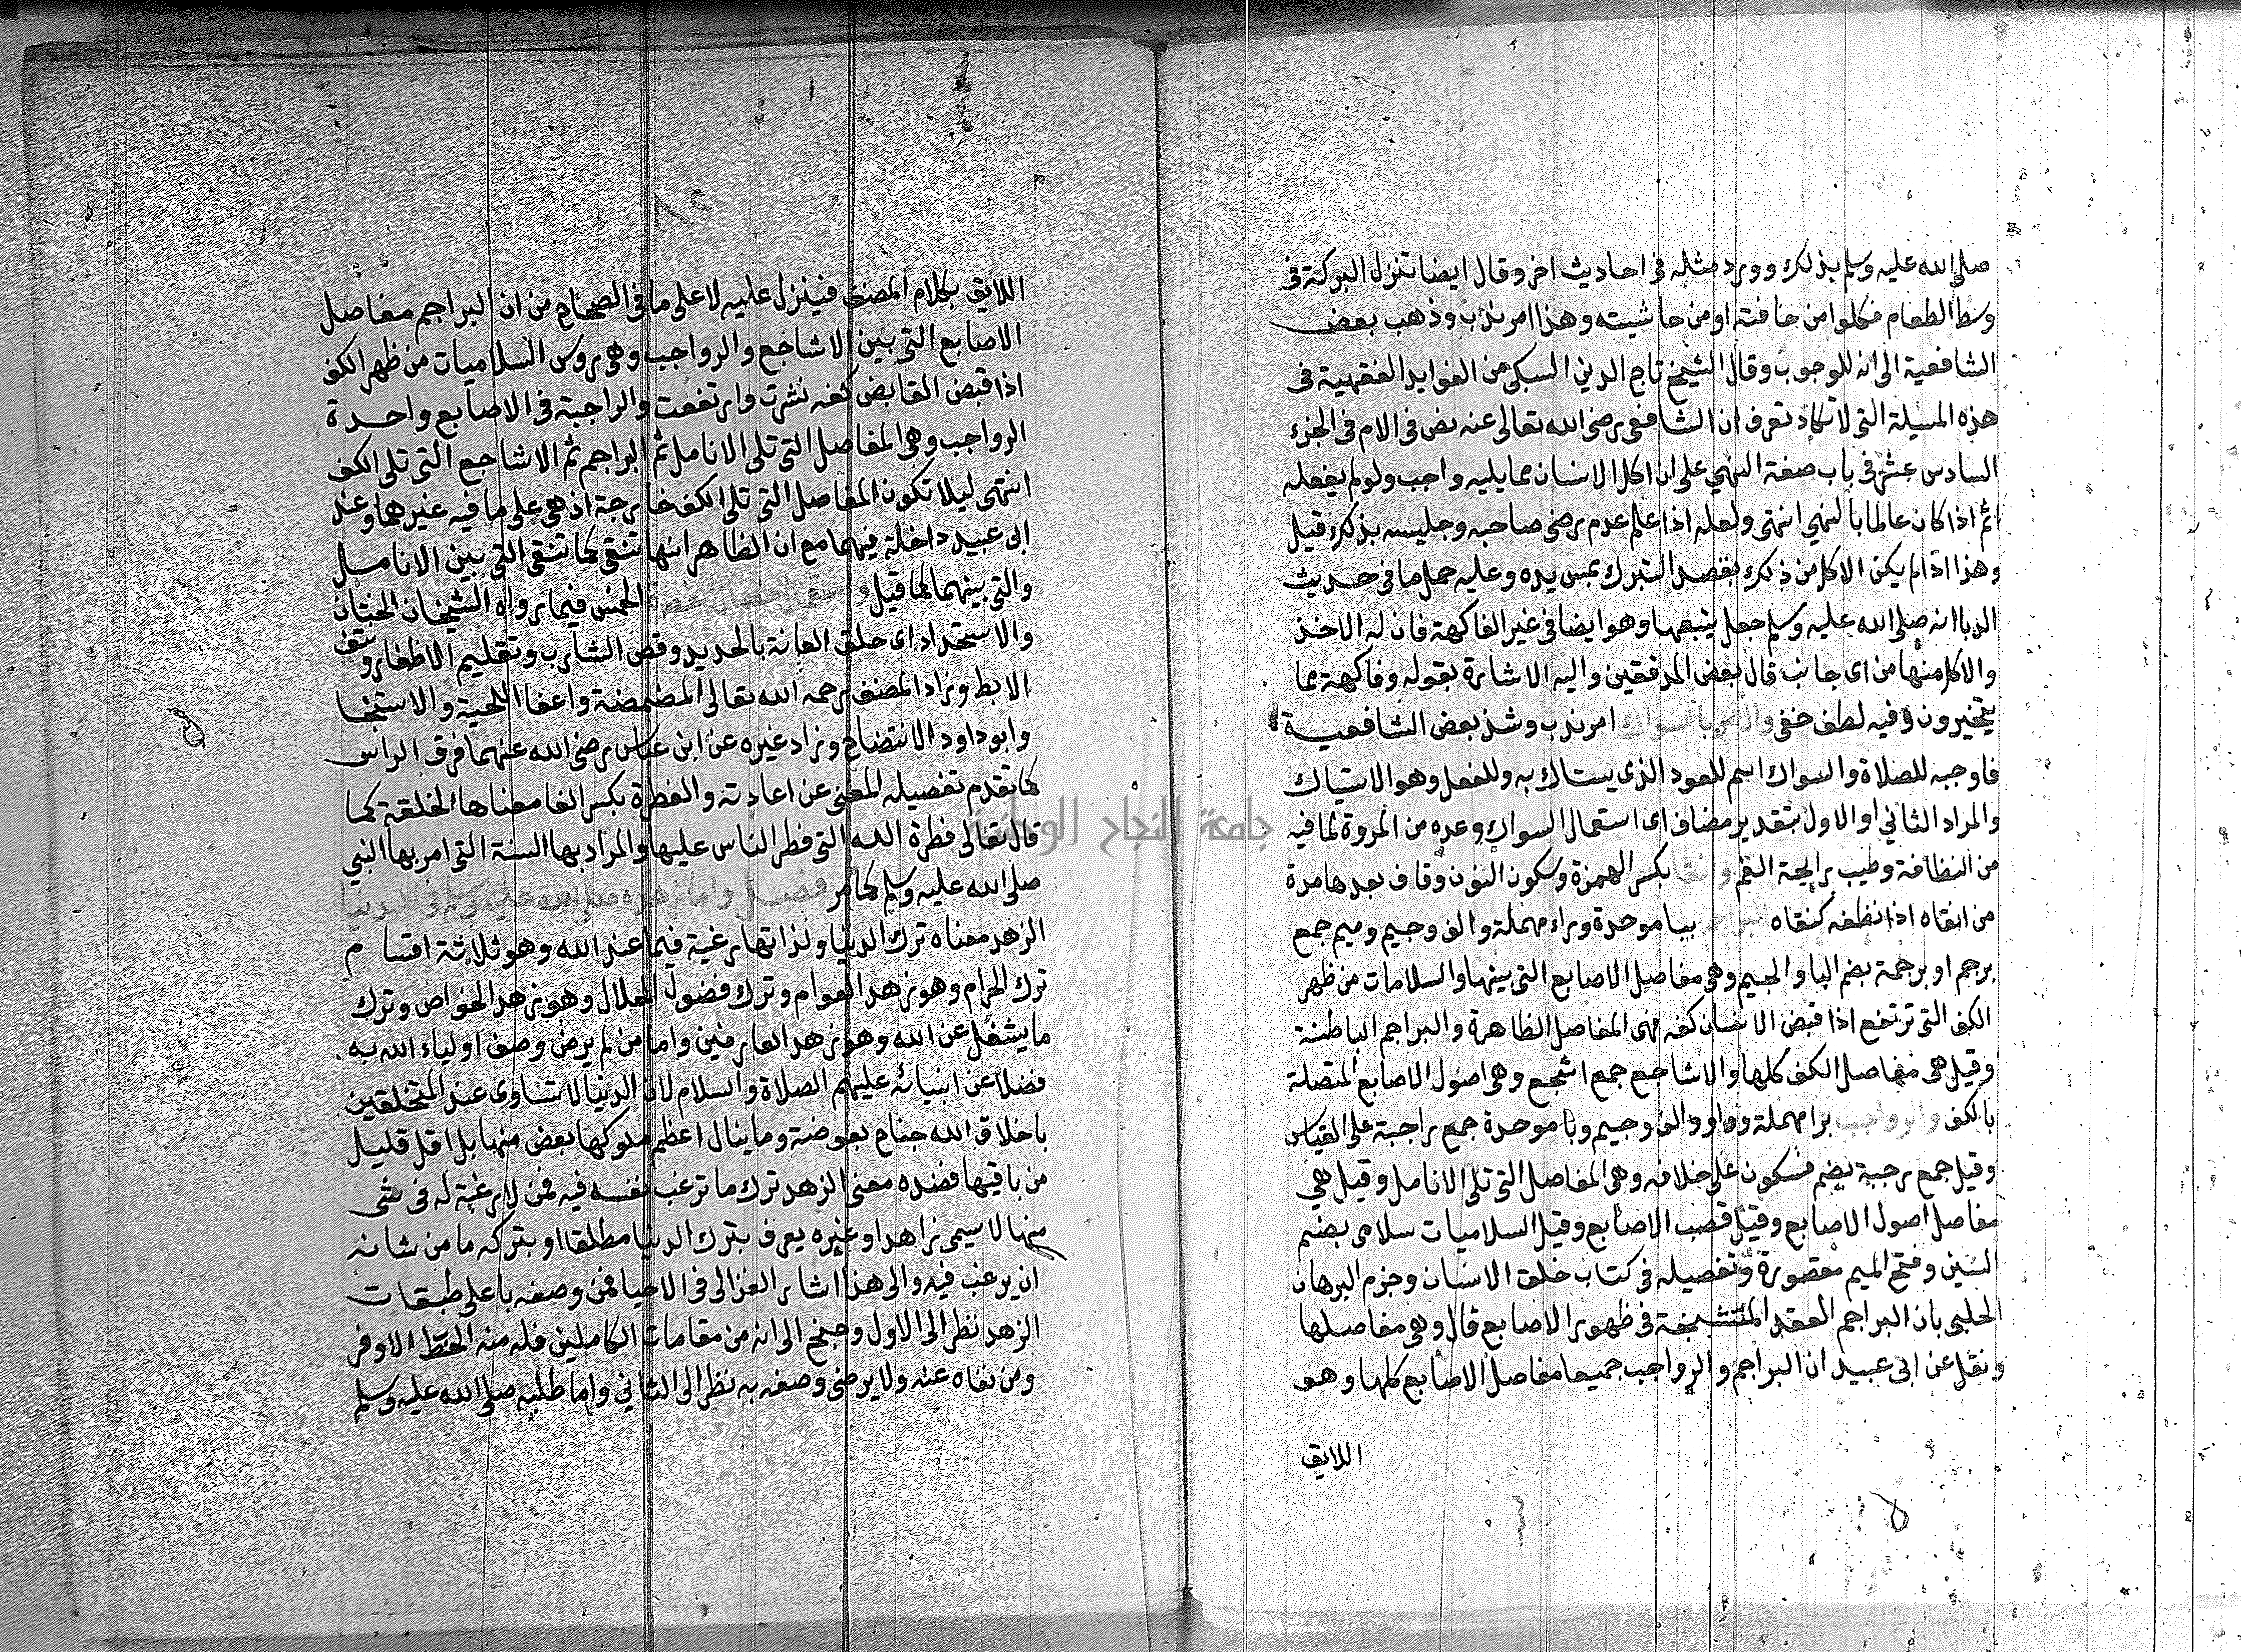 صلى الله عليه وسلم بذلك وورد مثله في احاديث اخر وقال ايضا تنزل البركة في
وسط الطعام فكلوا من حافته او من حاشيته وهذا امر ندب وذهب بعض
الشافعية الى انه للوجوب وقال الشيخ تاج الدين السبكي من الفوايد الفقهية في
هذه المسيلة التي لا تكاد تعرف ان الشافعي رضى الله تعالى عنه نص في الام في الجزء
السادس عشر في باب صفة النهي على ان اكل الانسان مما يليه واجب ولو لم يفعله
اثم اذا كان عالما بالنهي انتهى ولعله اذا علم عدم رضى صاحبه وجليسه بذلك قيل
وهذا اذا لم يكن الاكل من ذلك بقصد التبرك بمس يده وعليه حمل ما في حديث
الدبا انه صلى الله عليه وسلم جعل يتبعها وهو ايضا في غير الفاكهة فان له الاخذ
والاكل منها من اى جانب قال بعض المدققين واليه الاشارة بقوله وفاكهة مما
يتخيرون وفيه لطف خفى والامر بالسواك امر ندب وشذ بعض الشافعية
فاوجبه للصلاة والسواك اسم للعود الذى يستاك به وللفعل وهو الاستياك
والمراد الثاني او الاول بتقدير مضاف اى استعمال السواك وعده من المروة لما فيه
من النظافة وطيب رايحة الفم وانقا بكسر الهمزة وسكون النون وقاف بعدها مدة
من انقاه اذا نظفه كنقاه البراجم ببا موحدة وراء مهملة والف وجيم وميم جمع
برجم او برجمة بضم البا والجيم وهى مفاصل الاصابع التى بينها والسلامات من ظهر
الكف التى ترتفع اذا قبض الانسان كفه فهى المفاصل الظاهرة والبراجم الباطنة
وقيل هى مفاصل الكف كلها والاشاجع جمع اشجع وهى اصول الاصابع المتصلة
بالكف والرواجب برا مهملة وواو والف وجيم وبا موحدة جمع راجبة على القياس
وقيل جمع رجبة بضم فسكون على خلافه وهى المفاصل التى تلى الانامل وقيل هي
مفاصل اصول الاصابع وقيل قصب الاصابع وقيل السلاميات سلامى بضم
السين وفتح الميم مقصورة وتفصيله في كتاب خلق الانسان وجزم البرهان
الحلبى بان البراجم العقد المتشنجة في ظهور الاصابع قال وهى مفاصلها
ونقل عن ابى عبيد ان البراجم والرواجب جميعا مفاصل الاصابع كلها وهو
اللايق
اللايق بكلام المصنف فينزل عليه لا على ما فى الصحاح من ان البراجم مفاصل
الاصابع التى بين الاشاجع والرواجب وهى روس السلاميات من ظهر الكف
اذا قبض القابض كفه نشرت وارتفعت والراجبة في الاصابع واحدة
الرواجب وهى المفاصل التى تلى الانامل ثم البراجم ثم الاشاجع التى تلى الكف
انتهى ليلا تكون المفاصل التى تلى الكف خارجة اذ هى على ما فيه غيرهما وعند
ابى عبيد داخلة فيهما مع ان الظاهر انها تنقى كما تنقى التى بين الانامل
والتى بينهما لما قيل واستعمال خصال الفطرة الخمس فيما رواه الشيخان الختان
والاستحداد اى حلق العانة بالحديد وقص الشارب وتقليم الاظفار ونتف
الابط وزاد المصنف رحمه الله تعالى المضمضة واعفا اللحية والاستنجا
وابو داود الانتضاح وزاد غيره عن ابن عباس رضى الله عنهما فرق الراس
كما تقدم تفصيله المغنى عن اعادته والفطرة بكسر الفا معناها الخلقة كما
قال تعالى فطرة الله التى فطر الناس عليها والمراد بها السنة التى امر بها النبي
صلى الله عليه وسلم كما مر فصل واما زهده صلى الله عليه وسلم فى الدنيا
الزهد معناه ترك الدنيا ولذاتها رغبة فيما عند الله وهو ثلاثة اقسام
ترك الحرام وهو زهد العوام وترك فضول الحلال وهو زهد الخواص وترك
ما يشغل عن الله وهو زهد العارفين واما من لم يرض وصف اولياء الله به
فضلا عن انبيائه عليهم الصلاة والسلام لان الدنيا لا تساوى عند المتخلقين
باخلاق الله جناح بعوضة وما ينال اعظم ملوكها بعض منها بل اقل قليل
من باقيها فعنده معنى الزهد ترك ما ترغب نفسه فيه فمن لا رغبة له فى شى
منها لا سيمى زاهدا وغيره يعرف بترك الدنيا مطلقا او بتركه ما من شانه
ان يرغب فيه والى هذا اشار الغزالى فى الاحيا فمن وصفه باعلى طبقات
الزهد نظر الى الاول وجنح الى انه من مقامات الكاملين فله منه الحظ الاوفر
ومن نفاه عنه ولا يرضى وصفه به نظر الى الثاني واما طلبه صلى الله عليه وسلم
جامعة النجاح الوطنية